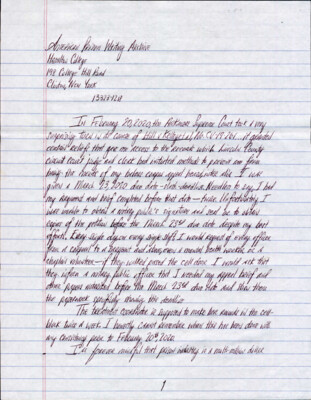 American Prison Writing Archive
Hamilton College
198 College Hill Road
Clinton, New York
13323-1218
In February 20, 2020, the Arkansas Supreme Court took a very
surprising turn in the cause of It granted
relief that gave me access to the courts which Lincoln County
circuit court judge and clerk had initiated methods to prevent me from
having the merits of my habeas corpus appeal heard. I was
given a March 23, 2020 due date Needless to say, I had
my argument and brief completed before that date Unfortunately I
was unable to obtain a notary public's signature and send me to obtain
copies of the petition before the March 23rd due date despite my best
efforts. Every single day on every single shift I would request of every officer
from a sergeant to a lieutenant and
chaplain whenever they walked passed the cell door. I would ask that
they inform a notary public officer that I needed my appeal brief and
other papers notarized before the March 23rd due date and show them
the paperwork specifically showing the deadline.
The is supposed to make her rounds in the cell-
block twice a week. I honestly cannot remember when this has been done with
any consistency prior to February 20th 2020.
I'm forever mindful that prison industry is a multi-million dollar
1